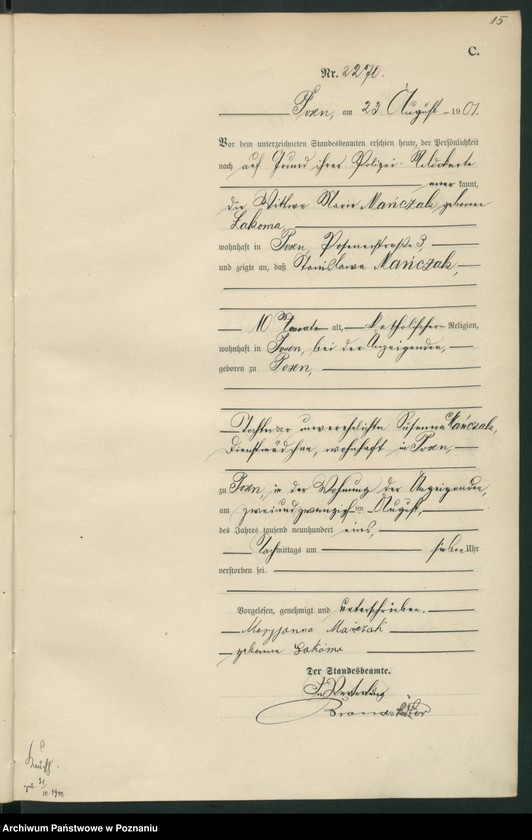 15
C.
Nr. 2270.
Posen, am 23 August 1901.
Vor dem unterzeichneten Standesbeamten erschien heute, der Persönlichkeit
nach auf Grund ihrer Polizei-Meldekarte
anerkannt,
die Wittwe Marie Mańczak, geborene
Łakoma,
wohnhaft in Posen, Posenerstraße 3,
und zeigte an, daß Stanislawa Mańczak,
10 Monate alt, katholischer Religion,
wohnhaft in Posen, bei der Anzeigenden,
geboren zu Posen,
Tochter der unverehelichten Susanna Mańczak,
Dienstmädchen, wohnhaft in Posen,
zu Posen, in der Wohnung der Anzeigenden,
am zweiundzwanzigsten August,
des Jahres tausend neunhundert eins,
Nachmittags um sieben Uhr
verstorben sei.
Vorgelesen, genehmigt und unterschrieben.
Maryjanna Mańczak
geborene Łakoma
Der Standesbeamte.
In Vertretung
geb.
Archiwum Państwowe w Poznaniu